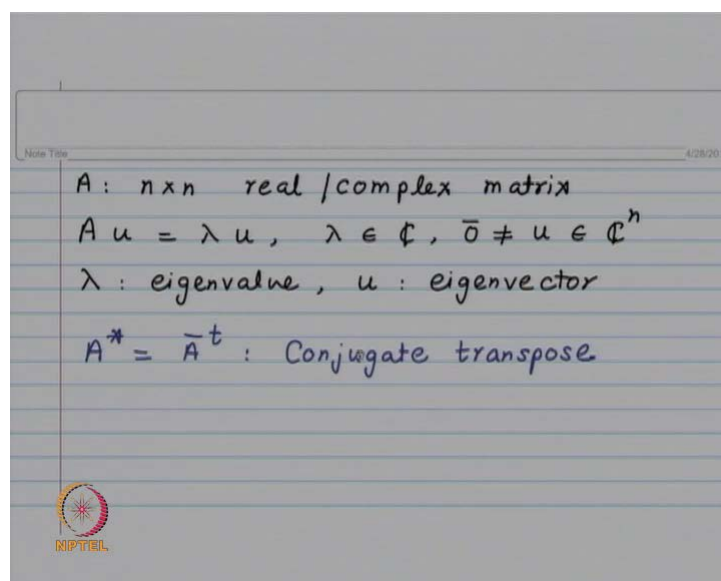 Note Title
4/28/20
A : n x n real / complex matrix
A u = λ u, λ ∈ ℂ, 0̄ ≠ u ∈ ℂⁿ
λ : eigenvalue, u : eigenvector
A* = Āᵗ : Conjugate transpose
NPTEL